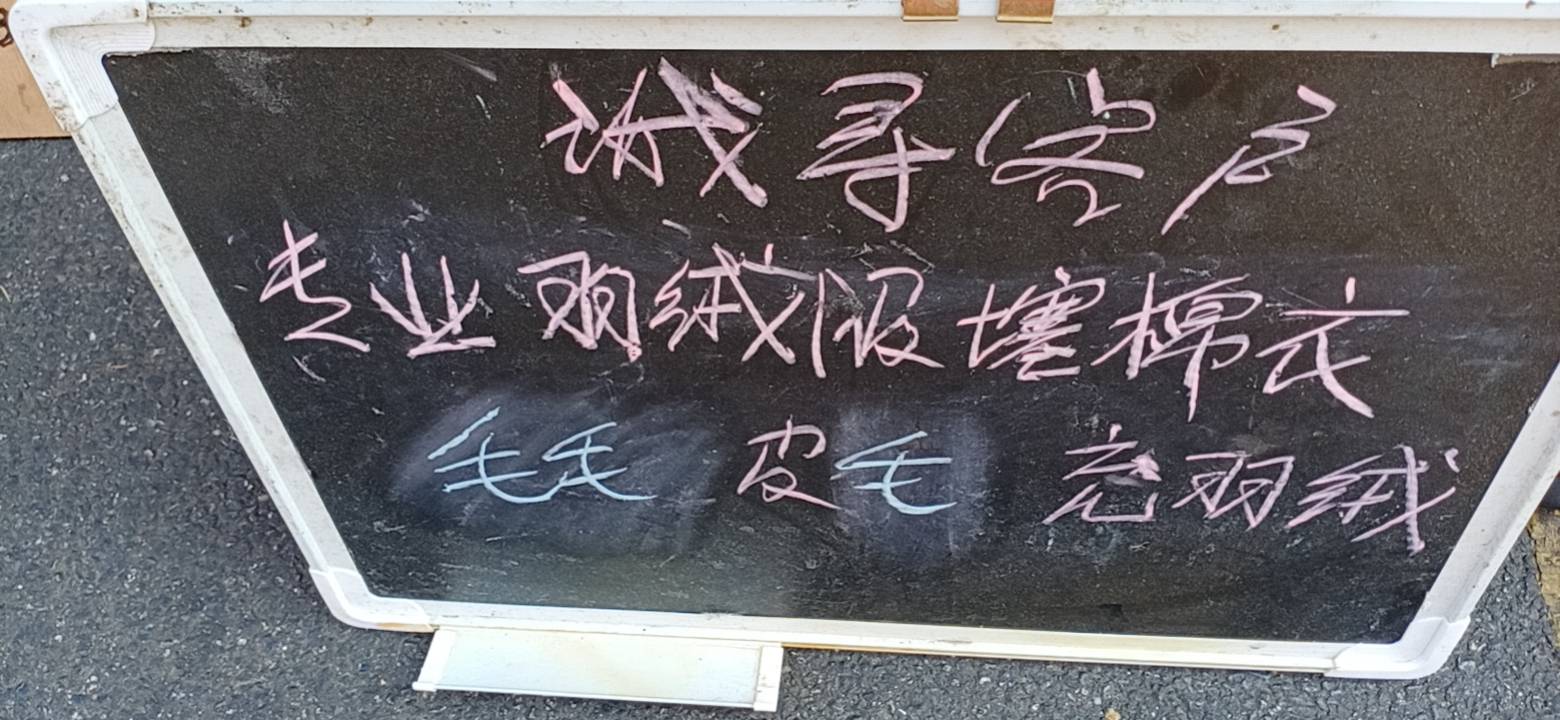 诚寻客户
专业羽绒服塞棉衣
毛毛 皮毛 充羽绒